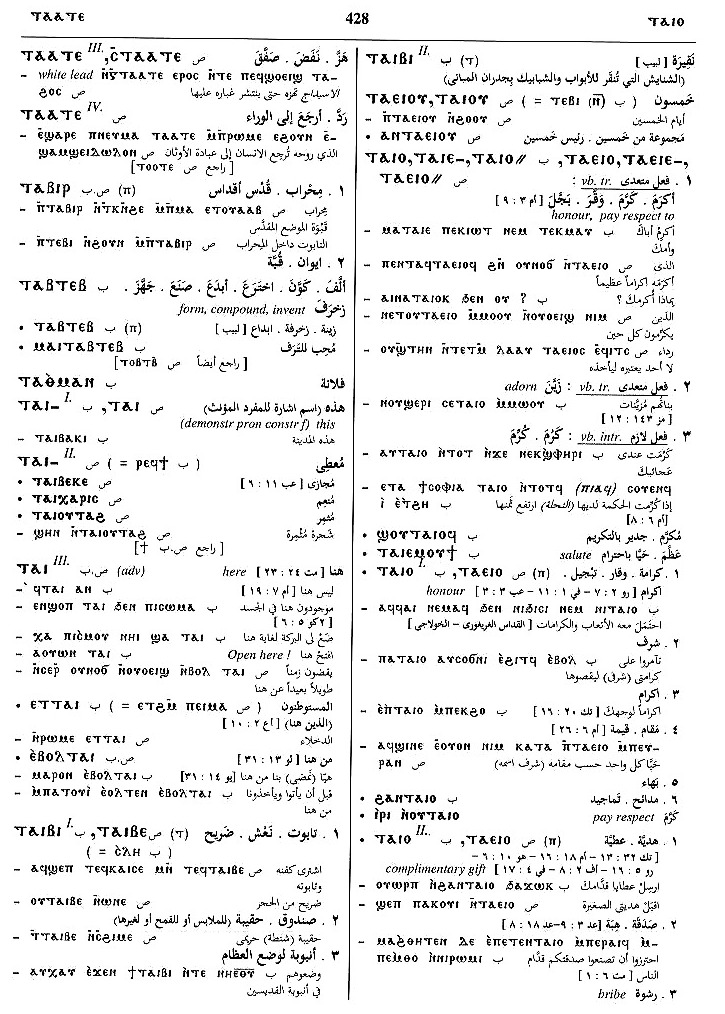 ⲧⲁⲁⲧⲉ
428
ⲧⲁⲓⲟ
ⲧⲁⲁⲧⲉ III., ⲥ̄ⲧⲁⲁⲧⲉ ص هَزَّ . نَفَضَ . صَفَّقَ
– white lead ⲛ̄ⲩ̄ⲧⲁⲁⲧⲉ ⲉⲣⲟⲥ ⲛ̄ⲧⲉ ⲡⲉϥϣⲟⲉⲓϣ ⲧⲁ-
ϩⲟⲥ ص الاسبيداج تهزه حتى ينتشر غباره عليها
ⲧⲁⲁⲧⲉ IV. ص رَدَّ . أرجَعَ إلى الوراء
– ⲉ̀ϣⲁⲣⲉ ⲡⲛⲉⲩⲙⲁ ⲧⲁⲁⲧⲉ ⲙ̄ⲡⲣⲱⲙⲉ ⲉϩⲟⲩⲛ ⲉ̀-
ϣⲁⲙϣⲉⲓⲇⲱⲗⲟⲛ ص الذي روحه تُرجع الانسان إلى عبادة الأوثان
[ راجع ⲧⲟⲟⲧⲉ ص ]
ⲧⲁⲃⲓⲣ ص.ب (ⲡ) ١ . مِحْراب . قُدْس أقداس
– ⲛ̄ⲧⲁⲃⲓⲣ ⲛ̄ⲧⲕⲛ̄ϩⲉ ⲙ̄ⲡⲙⲁ ⲉⲧⲟⲩⲁⲁⲃ ص محراب
قَبْوَة الموضع المقدَّس
– ⲛ̄ⲧⲉⲃⲓ ⲛ̄ϩⲟⲩⲛ ⲙ̄ⲡⲧⲁⲃⲓⲣ ص التابوت داخل المحراب
٢ . ايوان . قُبَّة
ⲧⲁⲃⲧⲉⲃ ب ألَّفَ . كَوَّنَ . اختَرَعَ . أبدَعَ . صَنَعَ . جَهَّزَ .
form, compound, invent زخرَفَ
• ⲧⲁⲃⲧⲉⲃ ب (ⲡ) زينة . زخرفة . ابداع [ لبيب ]
• ⲙⲁⲓⲧⲁⲃⲧⲉⲃ ب مُحِب للتَرَف
[ راجع أيضاً ⲧⲟⲃⲧⲃ̄ ص ]
ⲧⲁⲑⲙⲁⲛ ب فلانة
ⲧⲁⲓ- I. ب, ⲧⲁⲓ ص هذه (راسم اشارة للمفرد المؤنث)
(demonstr pron constr f) this
– ⲧⲁⲓⲃⲁⲕⲓ ب هذه المدينة
ⲧⲁⲓ- II. ص ( = ⲣⲉϥϯ ب ) مُعطِى
• ⲧⲁⲓⲃⲉⲕⲉ ص مُجازى [ عب ١١ : ٦ ]
• ⲧⲁⲓⲭⲁⲣⲓⲥ ص مُنعِم
• ⲧⲁⲓⲟⲩⲧⲁϩ ص مُثمِر
– ϣⲏⲛ ⲛ̄ⲧⲁⲓⲟⲩⲧⲁϩ ص شجرة مُثمِرة
[ راجع ϯ ص.ب ]
ⲧⲁⲓ III. ص.ب (adv) here هنا [ مت ٢٤ : ٢٣ ]
–` ϥⲧⲁⲓ ⲁⲛ ب ليس هنا [ أم ٧ : ١٩ ]
– ⲉⲛϣⲟⲡ ⲧⲁⲓ ϧⲉⲛ ⲡⲓⲥⲱⲙⲁ ب موجودون هنا في الجسد
[ ٢كو ٥ : ٦ ]
– ⲭⲁ ⲡⲓⲥ̀ⲙⲟⲩ ⲛⲏⲓ ϣⲁ ⲧⲁⲓ ب ضَعْ لى البركة لغاية هنا
– ⲁⲟⲩⲱⲛ ⲧⲁⲓ ب Open here ! افتح هنا !
– ⲛ̄ⲥⲉⲣ̄ ⲟⲩⲛⲟϭ ⲛ̄ⲟⲩⲟⲉⲓϣ ⲛ̄ⲃⲟⲗ ⲧⲁⲓ ص يقضون زمناً
طويلاً بعيداً عن هنا
• ⲉⲧⲧⲁⲓ ب ( = ⲉⲧϩⲙ̄ ⲡⲉⲓⲙⲁ ص ) المستوطنون
(الذين هنا) [ أع ٢ : ١٠ ]
– ⲛ̄ⲣⲱⲙⲉ ⲉⲧⲧⲁⲓ ص الدخلاء
• ⲉ̀ⲃⲟⲗⲧⲁⲓ ص.ب من هنا [ لو ١٣ : ٣١ ]
– ⲙⲁⲣⲟⲛ ⲉ̀ⲃⲟⲗⲧⲁⲓ ب هيّا (نمضى) بنا من هنا [ يو ١٤ : ٣١ ]
– ⲙ̀ⲡⲁⲧⲟⲩⲓ̀ ⲉⲟⲗⲧⲉⲛ ⲉ̀ⲃⲟⲗⲧⲁⲓ ب قبل أن يأتوا ويأخذونا
من هنا
ⲧⲁⲓⲃⲓ I. ب, ⲧⲁⲓⲃⲉ ص (ⲧ) ١ . تابوت . نَعْش . ضَريح
( = ⲥ̀ⲗⲏ ب )
– ⲁϥϣⲉⲡ ⲧⲉϥⲕⲁⲓⲥⲉ ⲙⲛ̄ ⲧⲉϥⲧⲁⲓⲃⲉ ص اشترى كفنه
وتابوته
– ⲟⲩⲧⲁⲓⲃⲉ ⲛ̄ⲱⲛⲉ ص ضريح من الحجر
٢ . صندوق . حقيبة (للملابس أو للقمح أو لغيرها)
– ⲧ̄ⲧⲁⲓⲃⲉ ⲛ̄ⲥϩⲓⲙⲉ ص حقيبة (شنطة) حريمى
٣ . أنبوبة لوضع العظام
– ⲁⲩⲭⲁⲩ ⲉ̀ϫⲉⲛ ϯⲧⲁⲓⲃⲓ ⲛ̀ⲧⲉ ⲛⲏⲉⲟⲩ ب وضعوهم
في أنبوبة القديسين
ⲧⲁⲓⲃⲓ II. ب (ⲧ) نَقيرَة [ لبيب ]
(الشنايش التي تُنقَر للأبواب والشبابيك بجدران المبانى)
ⲧⲁⲉⲓⲟⲩ, ⲧⲁⲓⲟⲩ ص ( = ⲧⲉⲃⲓ (ⲛ̄) ب ) خمسون
– ⲛ̄ⲧⲁⲉⲓⲟⲩ ⲛ̄ϩⲟⲟⲩ ص أيام الخمسين
• ⲁⲛⲧⲁⲉⲓⲟⲩ ص مجموعة من خمسين . رئيس خمسين
ⲧⲁⲓⲟ, ⲧⲁⲓⲉ-, ⲧⲁⲓⲟ// ب, ⲧⲁⲉⲓⲟ, ⲧⲁⲉⲓⲉ-,
ⲧⲁⲉⲓⲟ// ص ١ . فعل متعدى vb. tr. :
أكرَمَ . كَرَّمَ . وَقَّرَ . بَجَّلَ [ أم ٣ : ٩ ]
honour, pay respect to
– ⲙⲁⲧⲁⲓⲉ ⲡⲉⲕⲓⲱⲧ ⲛⲉⲙ ⲧⲉⲕⲙⲁⲩ ب أكرِم أباكَ
وأمكَ
– ⲡⲉⲛⲧⲁϥⲧⲁⲉⲓⲟϥ ϩⲛ̄ ⲟⲩⲛⲟϭ ⲛ̄ⲧⲁⲉⲓⲟ ص الذى
أكرَمَه اكراماً عظيماً
– ⲁⲓⲛⲁⲧⲁⲓⲟⲕ ϧⲉⲛ ⲟⲩ ? ب بماذا أُكرمكَ ؟
– ⲛⲉⲧⲟⲩⲧⲁⲉⲓⲟ ⲙ̄ⲙⲟⲟⲩ ⲛ̄ⲟⲩⲟⲉⲓϣ ⲛⲓⲙ ص الذين
يكرّمون كل حين
– ⲟⲩϣⲧⲏⲛ ⲛ̄ⲧⲉⲧⲙ̄ ⲗⲁⲁⲩ ⲧⲁⲉⲓⲟⲥ ⲉ̀ϥⲓⲧⲥ ص رداء
لا أحد يعتبره ليأخذه
٢ . فعل متعدى vb. tr. : زَيَّنَ adorn
– ⲛⲟⲩϣⲉⲣⲓ ⲥⲉⲧⲁⲓⲟ ⲙ̀ⲙⲱⲟⲩ ب بناتُهم مُزيَّنات
[ مز ١٤٣ : ١٢ ]
٣ . فعل لازم vb. intr. : كَرُمَ . كُرِّمَ
– ⲁⲩⲧⲁⲓⲟ ⲛ̀ⲧⲟⲧ ⲛ̀ϫⲉ ⲛⲉⲕϣ̀ⲫⲏⲣⲓ ب كَرُمَت عندى
عجائبكَ
– ⲉⲧⲁ ϯⲥⲟⲫⲓⲁ ⲧⲁⲓⲟ ⲛ̀ⲧⲟⲧϥ (ⲡⲓⲁϥ) ⲥⲟⲩⲉⲛϥ
ⲓ̀ ⲉ̀ϩⲣⲏ ب إذا كَرُمَت الحكمة لديها (النحلة) ارتفع ثمنها
[أم ٦ : ٨]
• ϣⲟⲩⲧⲁⲓⲟϥ ب مُكرَّم . جدير بالتكريم
• ⲧⲁⲓⲉⲙⲟⲩϯ ب salute عَظَّمَ . حَيّا باحترام
• ⲧⲁⲓⲟ I. ب, ⲧⲁⲉⲓⲟ ص (ⲡ) ١ . كرامة . وقار . تبجيل .
honour اكرام [ رو ٢ : ٧ – فى ١ : ١١ – عب ٣ : ٣ ]
– ⲁϥϥⲁⲓ ⲛⲉⲙⲁϥ ϧⲉⲛ ⲛⲓϧⲓⲥⲓ ⲛⲉⲙ ⲛⲓⲧⲁⲓⲟ ب
احتمَلَ معه الأتعاب والكرامات [ القداس الغريغورى – الخولاجى ]
٢ . شرف
– ⲡⲁⲧⲁⲓⲟ ⲁⲩⲥⲟⲃⲛⲓ ⲉ̀ϩⲓⲧϥ ⲉ̀ⲃⲟⲗ ب تآمروا على
كرامتى (شرفى) ليقصوها
٣ . اكرام
– ⲉ̀ⲡⲧⲁⲓⲟ ⲙ̀ⲡⲉⲕϩⲟ ب اكراماً لوجهكَ [ تك ٢٠ : ١٦ ]
٤ . مَقام . قيمة [ أم ٦ : ٢٦ ]
– ⲁϥϣⲓⲛⲉ ⲉ̀ⲟⲩⲟⲛ ⲛⲓⲙ ⲕⲁⲧⲁ ⲡ̄ⲧⲁⲉⲓⲟ ⲙ̄ⲡⲉϥ-
ⲣⲁⲛ ص حيّا كل واحد حسب مقامه (شرف اسمه)
٥ . بَهاء
• ϩⲁⲛⲧⲁⲓⲟ ب ٦ . مدائح . تماجيد
• ⲓ̀ⲣⲓ ⲛ̀ⲟⲩⲧⲁⲓⲟ pay respect كَرَّمَ
• ⲧⲁⲓⲟ II. ب, ⲧⲁⲉⲓⲟ ص (ⲡ) ١ . هديّة . عطيّة
[ تك ٣٢ : ١٣ – أم ١٨ : ١٦ – هو ١٠ : ٦ –
complimentary gift [ رو ٥ : ١٦ – أف ٢ : ٨ – فى ٤ : ١٧ ]
– ⲟⲩⲱⲣⲡ ⲛ̀ϩⲁⲛⲧⲁⲓⲟ ϧⲁϫⲱⲕ ب ارسِلْ عطايا قدَّامكَ
– ϣⲉⲡ ⲡⲁⲕⲟⲩⲓ ⲛ̀ⲧⲁⲉⲓⲟ ص اقبَلْ هديتى الصغيرة
٢ . صَدَقَة . هِبَة [ عد ٣ : ٩ – عد ١٨ : ٨ ]
– ⲙⲁϩⲑⲏⲧⲉⲛ ⲇⲉ ⲉ̀ⲡⲉⲧⲉⲛⲧⲁⲓⲟ ⲙ̀ⲡⲉⲣⲁⲓϥ ⲙ̀-
ⲡⲉⲙⲑⲟ ⲛ̀ⲛⲓⲣⲱⲙⲓ ب احترزوا أن تصنعوا صدقتكم قدَّام
الناس [ مت ٦ : ١ ]
bribe ٣ . رشوة